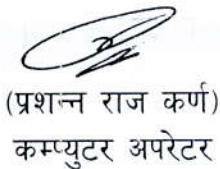 (प्रशन्त राज कर्ण)
कम्प्युटर अपरेटर